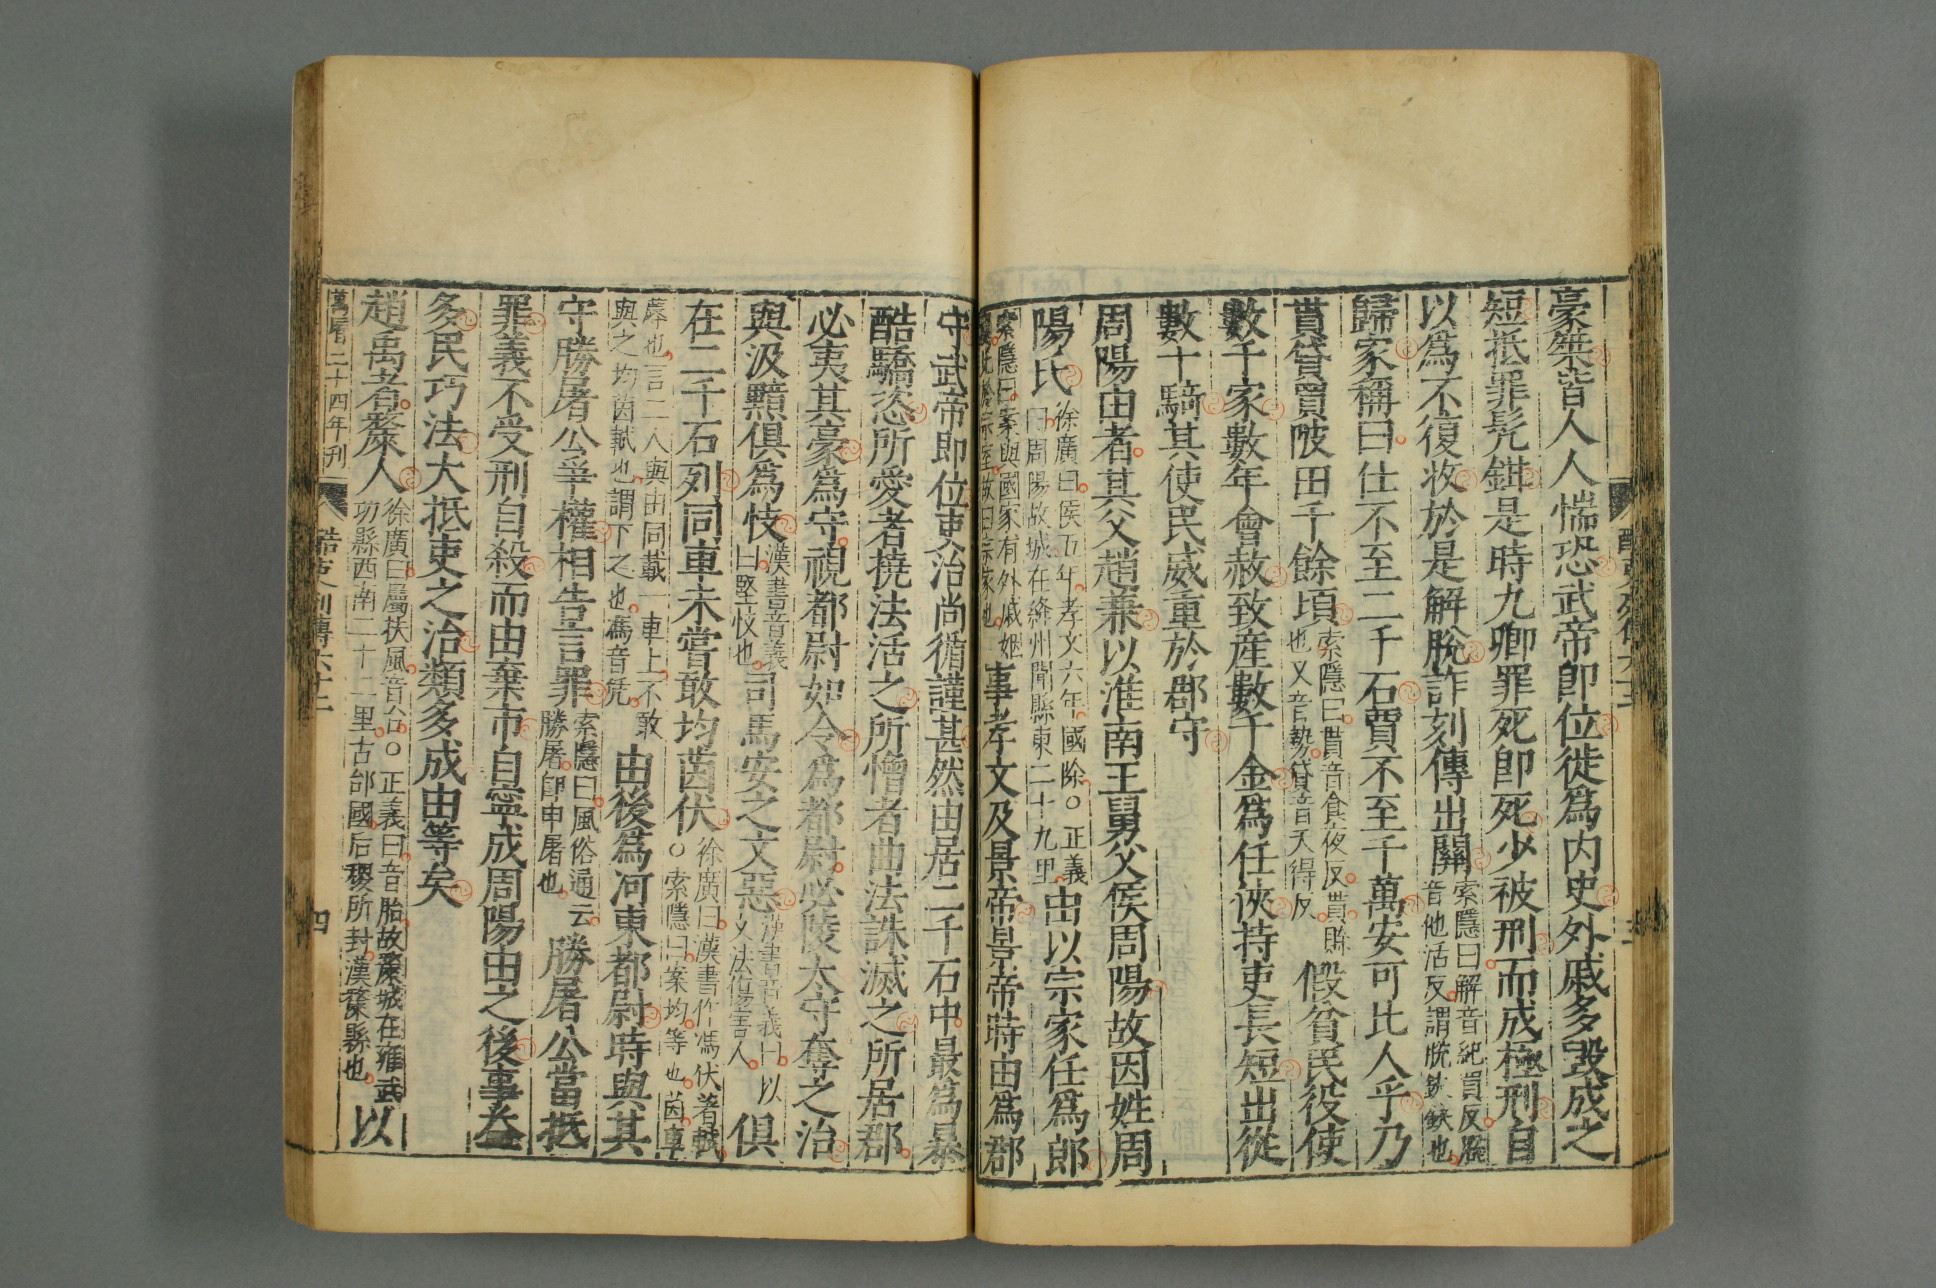 豪桀皆人人惴恐武帝即位徙爲内史外戚多毀成之
短抵罪髠鉗是時九卿罪死即死少被刑而成極刑自
以爲不復收於是解脫詐刻傳出關索隱曰解音紀買反脫音他活反謂脫鈦鈦也
歸家稱曰仕不至二千石賈不至千萬安可比人乎乃
貰貸買陂田千餘頃索隱曰貰音食夜反貰賖也又音勢貸音天得反假貧民役使
數千家數年會赦致産數千金爲任俠持吏長短出從
數十騎其使民威重於郡守
周陽由者其父趙兼以淮南王舅父侯周陽故因姓周
陽氏徐廣曰侯五年孝文六年國除○正義曰周陽故城在絳州聞縣東二十九里由以宗家任爲郎
索隱曰案與國家有外戚姻事孝文及景帝景帝時由爲郡
守武帝即位吏治尚循謹甚然由居二千石中最爲暴
酷驕恣所愛者撓法活之所憎者曲法誅滅之所居郡
必夷其豪爲守視都尉如令爲都尉必陵太守奪之治
與汲黯俱爲忮漢書音義曰堅忮也司馬安之文惡漢書音義曰以文法傷害人俱
在二千石列同車未嘗敢均茵伏徐廣曰漢書作馮伏者軾○索隱曰案均等也茵車
蓐也言二人與由同載一車上不敢與之均茵軾也謂下之也馮音凭由後爲河東都尉時與其
守勝屠公爭權相告言罪索隱曰風俗通云勝屠即申屠也勝屠公當抵
罪義不受刑自殺而由棄市自寧成周陽由之後事益
多民巧法大抵吏之治類多成由等矣
趙禹者斄人徐廣曰屬扶風音台○正義曰音胎故斄城在雍武功縣西南二十二里古邰國后稷所封漢斄縣也以
萬曆二十四年刊
酷吏列傳六十二
四